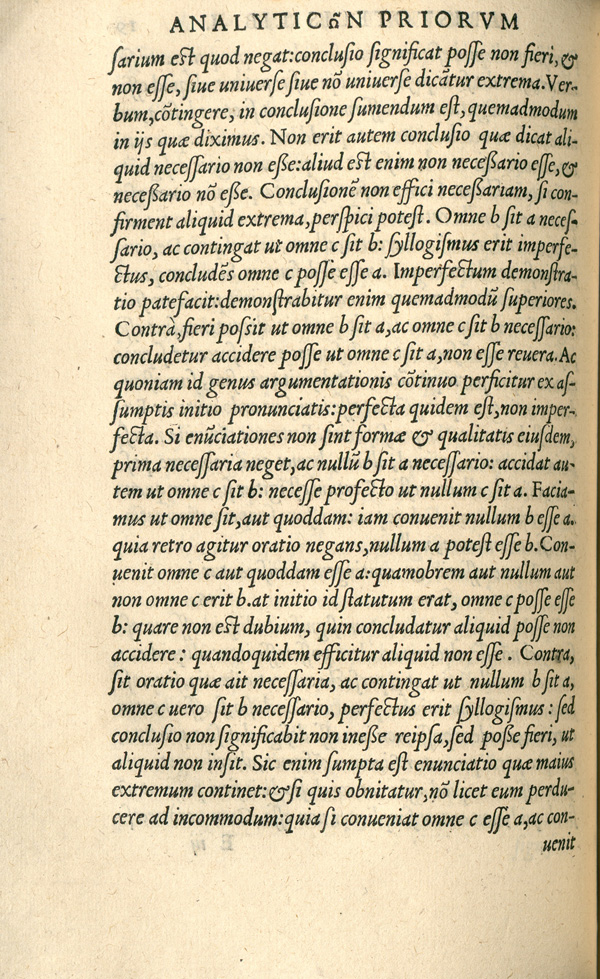 ANALYTICωN PRIORVM
sarium est quod negat:conclusio significat posse non fieri, &
non esse, siue uniuerse siue nō uniuerse dicātur extrema. Ver-
bum, cōtingere, in conclusione sumendum est, quemadmodum
in ijs quæ diximus. Non erit autem conclusio quæ dicat ali-
quid necessario non eße:aliud est enim non neceßario esse, &
neceßario nō eße. Conclusionē non effici neceßariam, si con-
firment aliquid extrema, perspici potest. Omne b sit a neces-
sario, ac contingat ut omne c sit b: syllogismus erit imperfe-
ctus, concludēs omne c posse esse a. Imperfectum demonstra-
tio patefacit:demonstrabitur enim quemadmodū superiores.
Contrà, fieri possit ut omne b sit a, ac omne c sit b necessario:
concludetur accidere posse ut omne c sit a, non esse reuera. Ac
quoniam id genus argumentationis cōtinuo perficitur ex as-
sumptis initio pronunciatis:perfecta quidem est, non imper-
fecta. Si enūciationes non sint formæ & qualitatis eiusdem,
prima necessaria neget, ac nullū b sit a necessario: accidat au-
tem ut omne c sit b: necesse profecto ut nullum c sit a. Facia-
mus ut omne sit, aut quoddam: iam conuenit nullum b esse a.
quia retro agitur oratio negans, nullum a potest esse b. Con-
uenit omne c aut quoddam esse a:quamobrem aut nullum aut
non omne c erit b. at initio id statutum erat, omne c posse esse
b: quare non est dubium, quin concludatur aliquid posse non
accidere : quandoquidem efficitur aliquid non esse . Contra,
sit oratio quæ ait necessaria, ac contingat ut nullum b sit a,
omne c uero sit b necessario, perfectus erit syllogismus : sed
conclusio non significabit non ineße reipsa, sed poße fieri, ut
aliquid non insit. Sic enim sumpta est enunciatio quæ maius
extremum continet: & si quis obnitatur, nō licet eum perdu-
cere ad incommodum:quia si conueniat omne c esse a, ac con-
uenit